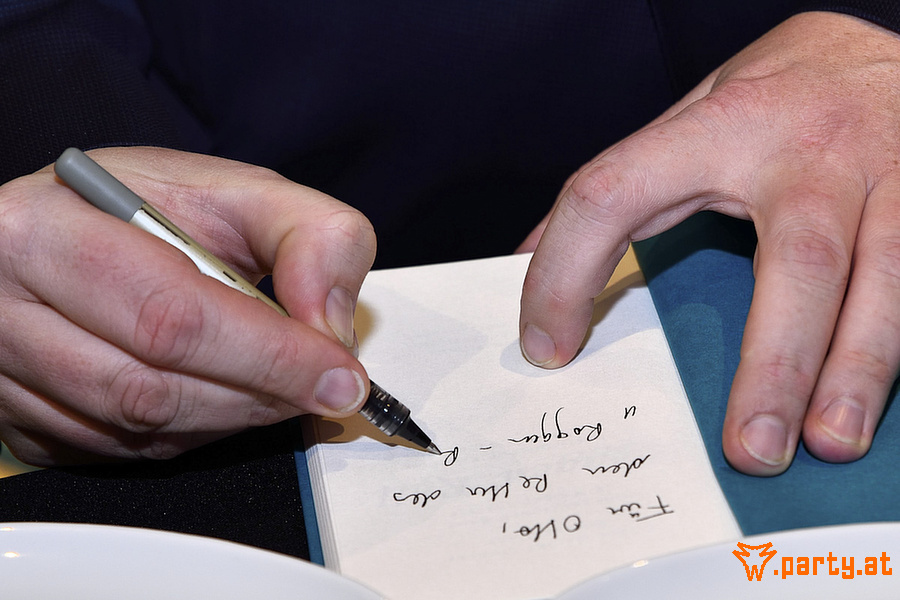 Für Otto,
den Retter des
u Roggen - R
W.party.at